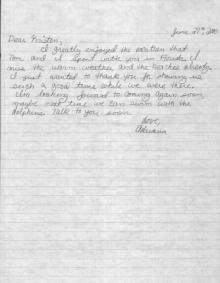 June 29th, 2010
Dear Preston,
I greatly enjoyed the vacation that
Tom and I spent with you in Florida. I
miss the warm weather and the beaches already.
I just wanted to thank you for showing us
such a good time while we were there.
I'm looking forward to coming again soon,
maybe next time we can swim with the
dolphins. Talk to you soon.
Love,
Adriana